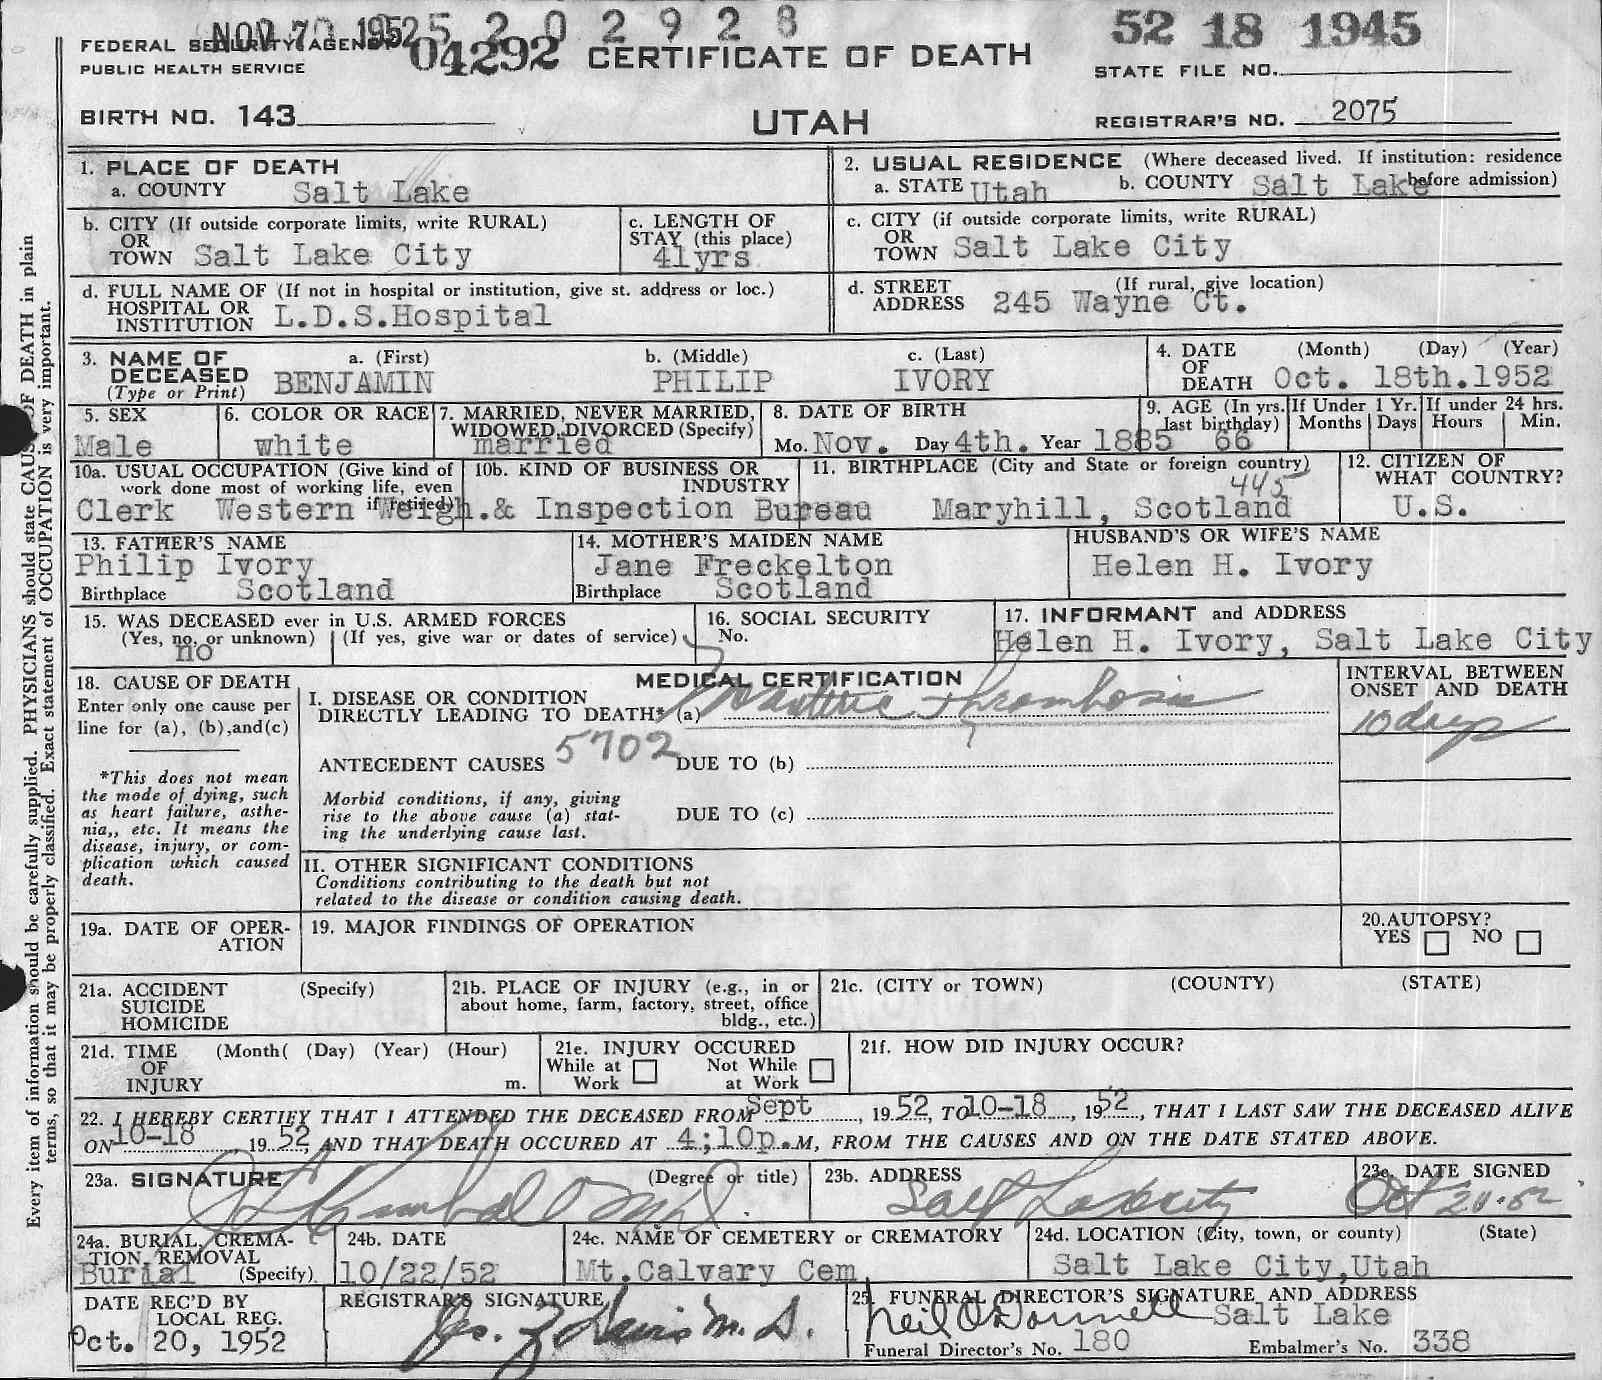 NOV 7 1952 5 2 0 2 9 2 8
52 18 1945
FEDERAL SECURITY AGENCY 04292 CERTIFICATE OF DEATH
PUBLIC HEALTH SERVICE
STATE FILE NO.
BIRTH NO. 143
UTAH
REGISTRAR'S NO. 2075
1. PLACE OF DEATH
a. COUNTY Salt Lake
2. USUAL RESIDENCE (Where deceased lived. If institution: residence before admission)
a. STATE Utah b. COUNTY Salt Lake
b. CITY (If outside corporate limits, write RURAL)
OR
TOWN Salt Lake City
c. LENGTH OF
STAY (this place)
41yrs
c. CITY (if outside corporate limits, write RURAL)
OR
TOWN Salt Lake City
d. FULL NAME OF (If not in hospital or institution, give st. address or loc.)
HOSPITAL OR
INSTITUTION L.D.S.Hospital
d. STREET (If rural, give location)
ADDRESS 245 Wayne Ct.
3. NAME OF a. (First) b. (Middle) c. (Last)
DECEASED BENJAMIN PHILIP IVORY
(Type or Print)
4. DATE (Month) (Day) (Year)
OF
DEATH Oct. 18th.1952
5. SEX
Male
6. COLOR OR RACE
white
7. MARRIED, NEVER MARRIED,
WIDOWED,DIVORCED (Specify)
married
8. DATE OF BIRTH
Mo. Nov. Day 4th. Year 1885
9. AGE (In yrs.
last birthday)
66
If Under 1 Yr.
Months Days
If under 24 hrs.
Hours Min.
10a. USUAL OCCUPATION (Give kind of
work done most of working life, even
if retired)
10b. KIND OF BUSINESS OR
INDUSTRY
Clerk Western Weigh.& Inspection Bureau
11. BIRTHPLACE (City and State or foreign country)
445
Maryhill, Scotland
12. CITIZEN OF
WHAT COUNTRY?
U.S.
13. FATHER'S NAME
Philip Ivory
Birthplace Scotland
14. MOTHER'S MAIDEN NAME
Jane Freckelton
Birthplace Scotland
HUSBAND'S OR WIFE'S NAME
Helen H. Ivory
15. WAS DECEASED ever in U.S. ARMED FORCES
(Yes, no, or unknown) (If yes, give war or dates of service)
no
16. SOCIAL SECURITY
No.
17. INFORMANT and ADDRESS
Helen H. Ivory, Salt Lake City
18. CAUSE OF DEATH
Enter only one cause per
line for (a), (b),and(c)
*This does not mean
the mode of dying, such
as heart failure, asthe-
nia,, etc. It means the
disease, injury, or com-
plication which caused
death.
MEDICAL CERTIFICATION
I. DISEASE OR CONDITION
DIRECTLY LEADING TO DEATH* (a) Thrombosis
5702
ANTECEDENT CAUSES DUE TO (b)
Morbid conditions, if any, giving
rise to the above cause (a) stat-
ing the underlying cause last.
DUE TO (c)
INTERVAL BETWEEN
ONSET AND DEATH
10 days
II. OTHER SIGNIFICANT CONDITIONS
Conditions contributing to the death but not
related to the disease or condition causing death.
19a. DATE OF OPER-
ATION
19. MAJOR FINDINGS OF OPERATION
20.AUTOPSY?
YES NO
21a. ACCIDENT (Specify)
SUICIDE
HOMICIDE
21b. PLACE OF INJURY (e.g., in or
about home, farm, factory, street, office
bldg., etc.)
21c. (CITY or TOWN) (COUNTY) (STATE)
21d. TIME (Month( (Day) (Year) (Hour)
OF
INJURY m.
21e. INJURY OCCURED
While at Not While
Work at Work
21f. HOW DID INJURY OCCUR?
22. I HEREBY CERTIFY THAT I ATTENDED THE DECEASED FROM Sept , 19 52, TO 10-18 , 19 52 , THAT I LAST SAW THE DECEASED ALIVE
ON 10-18 19 52, AND THAT DEATH OCCURED AT 4;10p.M, FROM THE CAUSES AND ON THE DATE STATED ABOVE.
23a. SIGNATURE (Degree or title)
23b. ADDRESS
Salt Lake City
23c. DATE SIGNED
Oct 20-52
24a. BURIAL, CREMA-
TION, REMOVAL
Burial (Specify)
24b. DATE
10/22/52
24c. NAME OF CEMETERY or CREMATORY
Mt.Calvary Cem.
24d. LOCATION (City, town, or county) (State)
Salt Lake City,Utah
DATE REC'D BY
LOCAL REG.
Oct. 20, 1952
REGISTRAR'S SIGNATURE
25. FUNERAL DIRECTOR'S SIGNATURE AND ADDRESS
Neil O'Donnell Salt Lake
Funeral Director's No. 180 Embalmer's No. 338
Every item of information should be carefully supplied. PHYSICIANS should state CAUSE OF DEATH in plain
terms, so that it may be properly classified. Exact statement of OCCUPATION is very important.